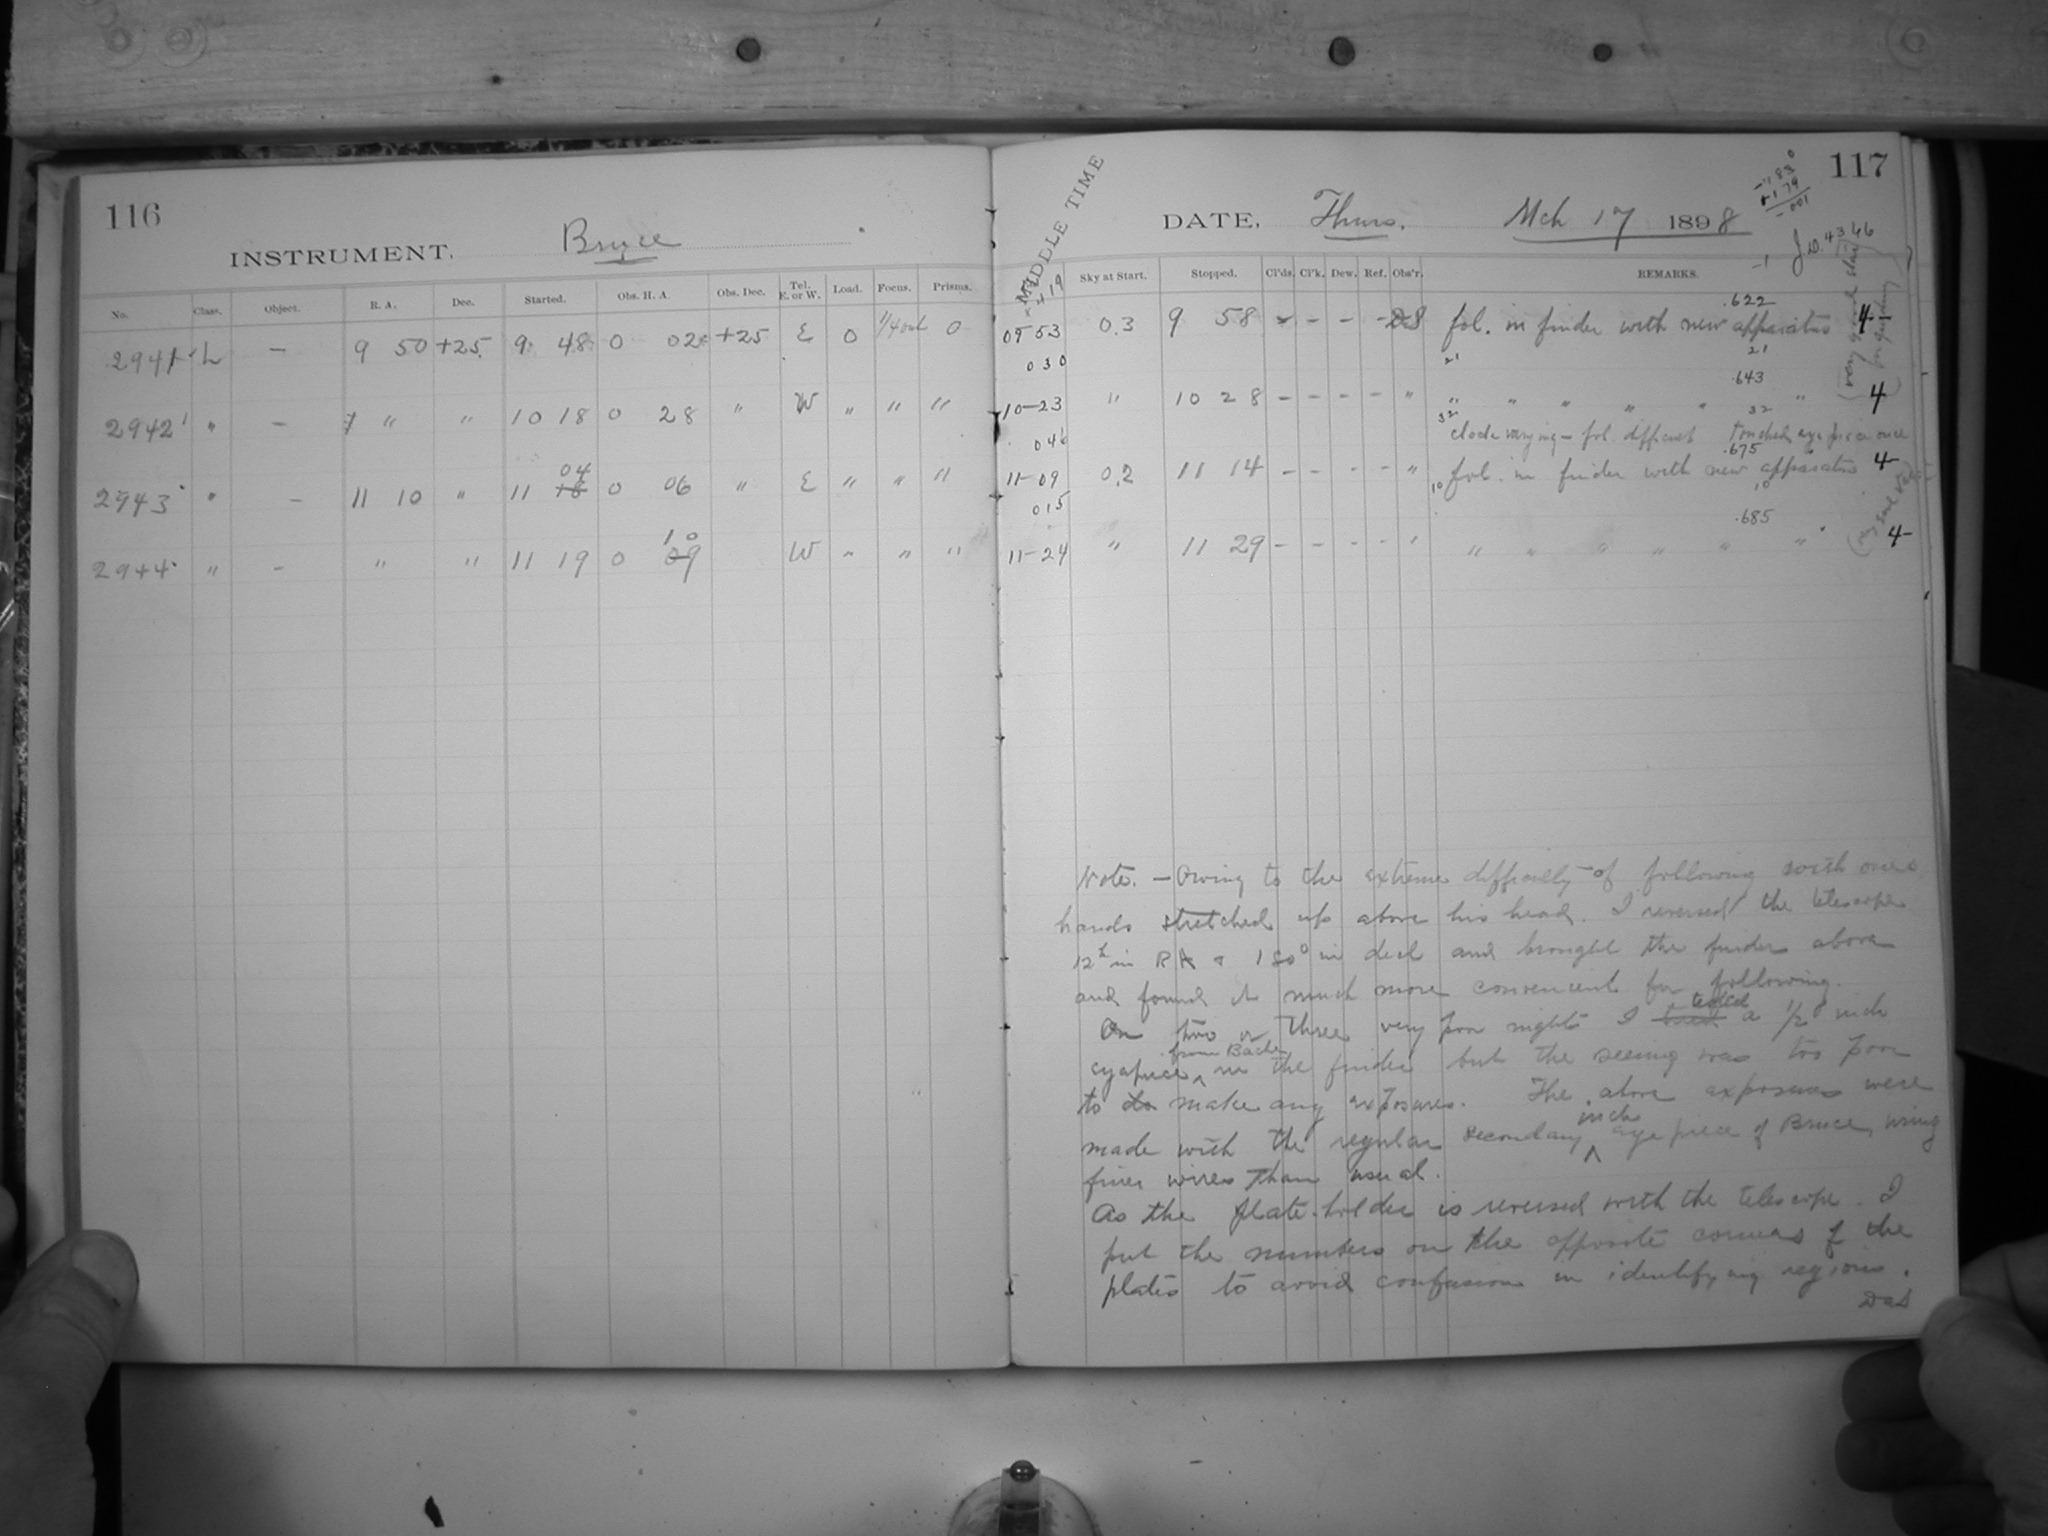 116
INSTRUMENT, Bruce
No. Class. Object. R. A. Dec. Started. Obs. H. A. Obs. Dec. Tel. E. or W. Load. Focus. Prisms.
2941 L — 9 50 +25 9 48 0 02 +25 E 0 1/4 out 0
2942 " — " " 10 18 0 28 " W " " "
04
2943 " — 11 10 " 11 18 0 06 " E " " "
10
2944 " — " " 11 19 0 09 W " " "
117
MIDDLE TIME
+19
DATE, Thurs. Mch 17 1898
J.D. 4366
Sky at Start. Stopped. Cl'ds. Cl'k. Dew. Ref. Obs'r. REMARKS.
.622
09-53 0.3 9 58 - - - - fol. in finder with new apparatus 4
030 21 21
.643
10-23 " 10 28 - - - - " " " " " " " 4
046 32 32
clock varying - fol. difficult touched eye piece once
.675
11-09 0.2 11 14 - - - - " fol. in finder with new apparatus 4
015 10 10
.685
11-24 " 11 29 - - - - " " " " " " " 4
Note. — Owing to the extreme difficulty of following with ones
hands stretched up above his head. I reversed the telescope
12h in RA & 180° in decl and brought the finder above
and found it much more convenient for following.
tested
On two or three very poor nights I tried a 1/2 inch
from Bache
eyepiece ^ in the finder but the seeing was too poor
to do make any exposures. The above exposures were
inch
made with the regular secondary ^ eye piece of Bruce, using
finer wires than usual.
As the plate-holder is reversed with the telescope. I
put the numbers on the opposite corners of the
plates to avoid confusion in identifying regions.